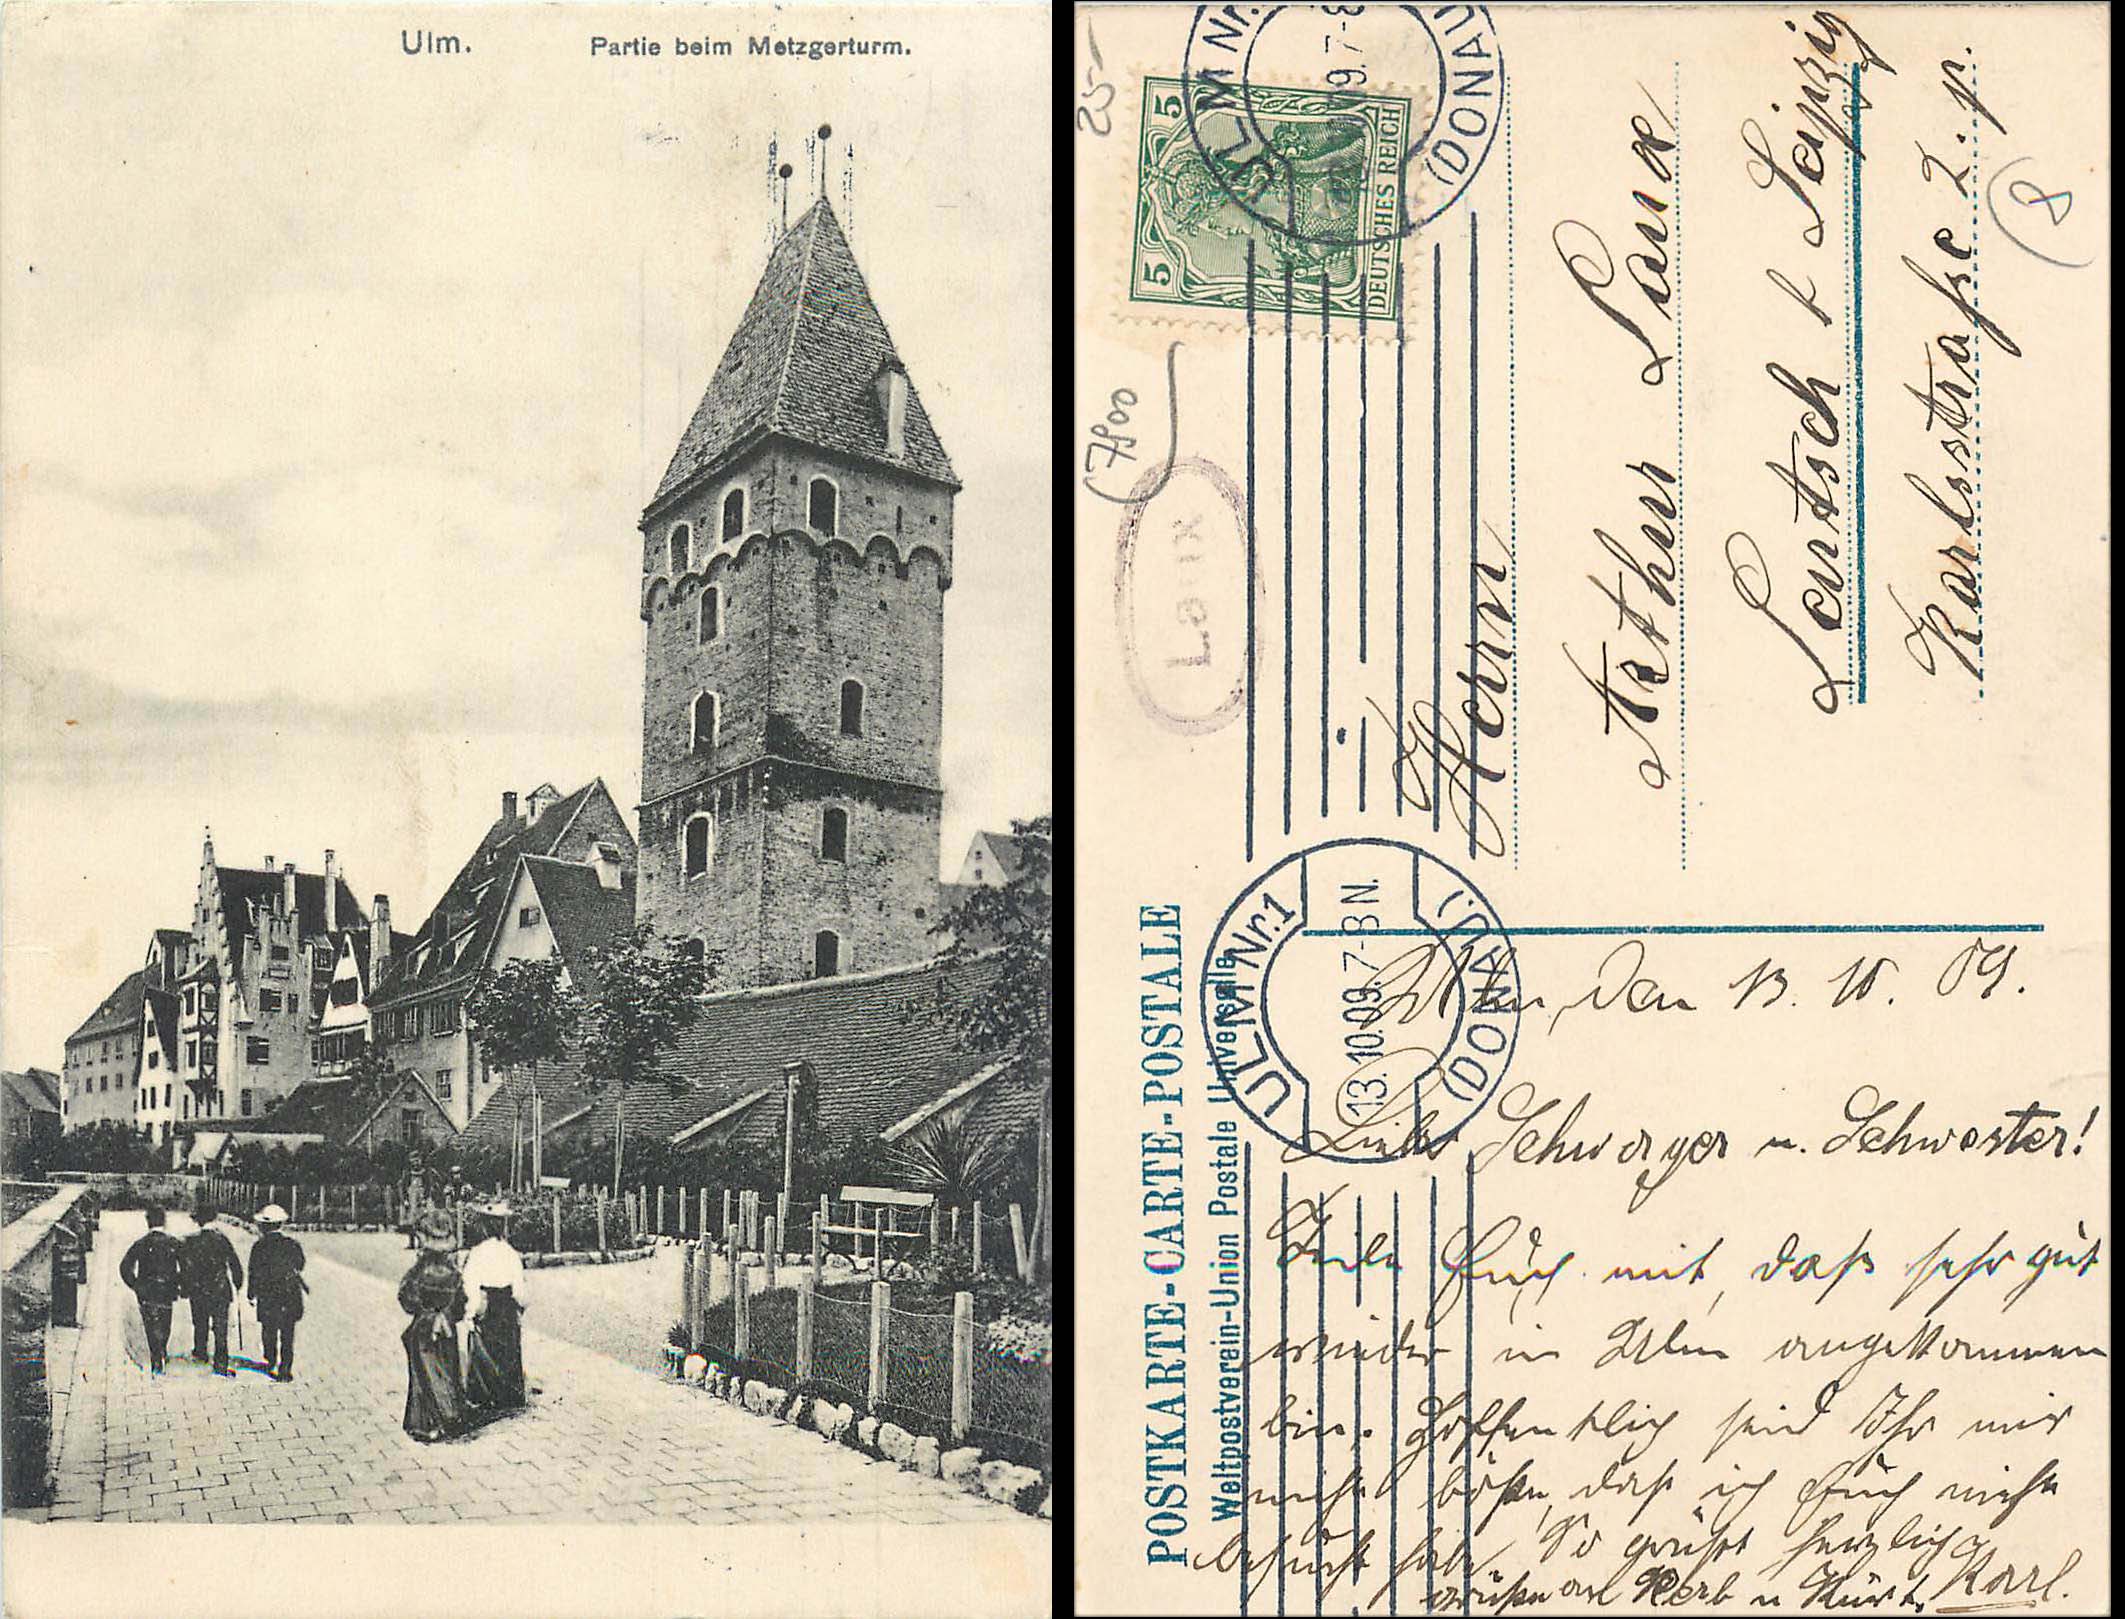 Ulm.
Partie beim Metzgerturm.
25-
5
5
DEUTSCHES REICH
ULM Nr.
09.7-8
(DONAU
(7900
Laux
Herrn
Arthur Laux
Leutsch b Leipzig
Karlsstraße 2. p.
(8
POSTKARTE-CARTE-POSTALE
Weltpostverein-Union Postale Universelle
ULM Nr.1
13.10.09.7-8 N.
(DONAU.)
Ulm, den 13. 10. 09.
Lieber Schwager u. Schwester!
Teile Euch mit, daß sehr gut
wieder in Ulm angekommen
bin. Hoffentlich seid Ihr mir
nicht böse, daß ich Euch nicht
besucht habe. So grüßt herzlich
Karl.
Grüße an Herb u Kurt.